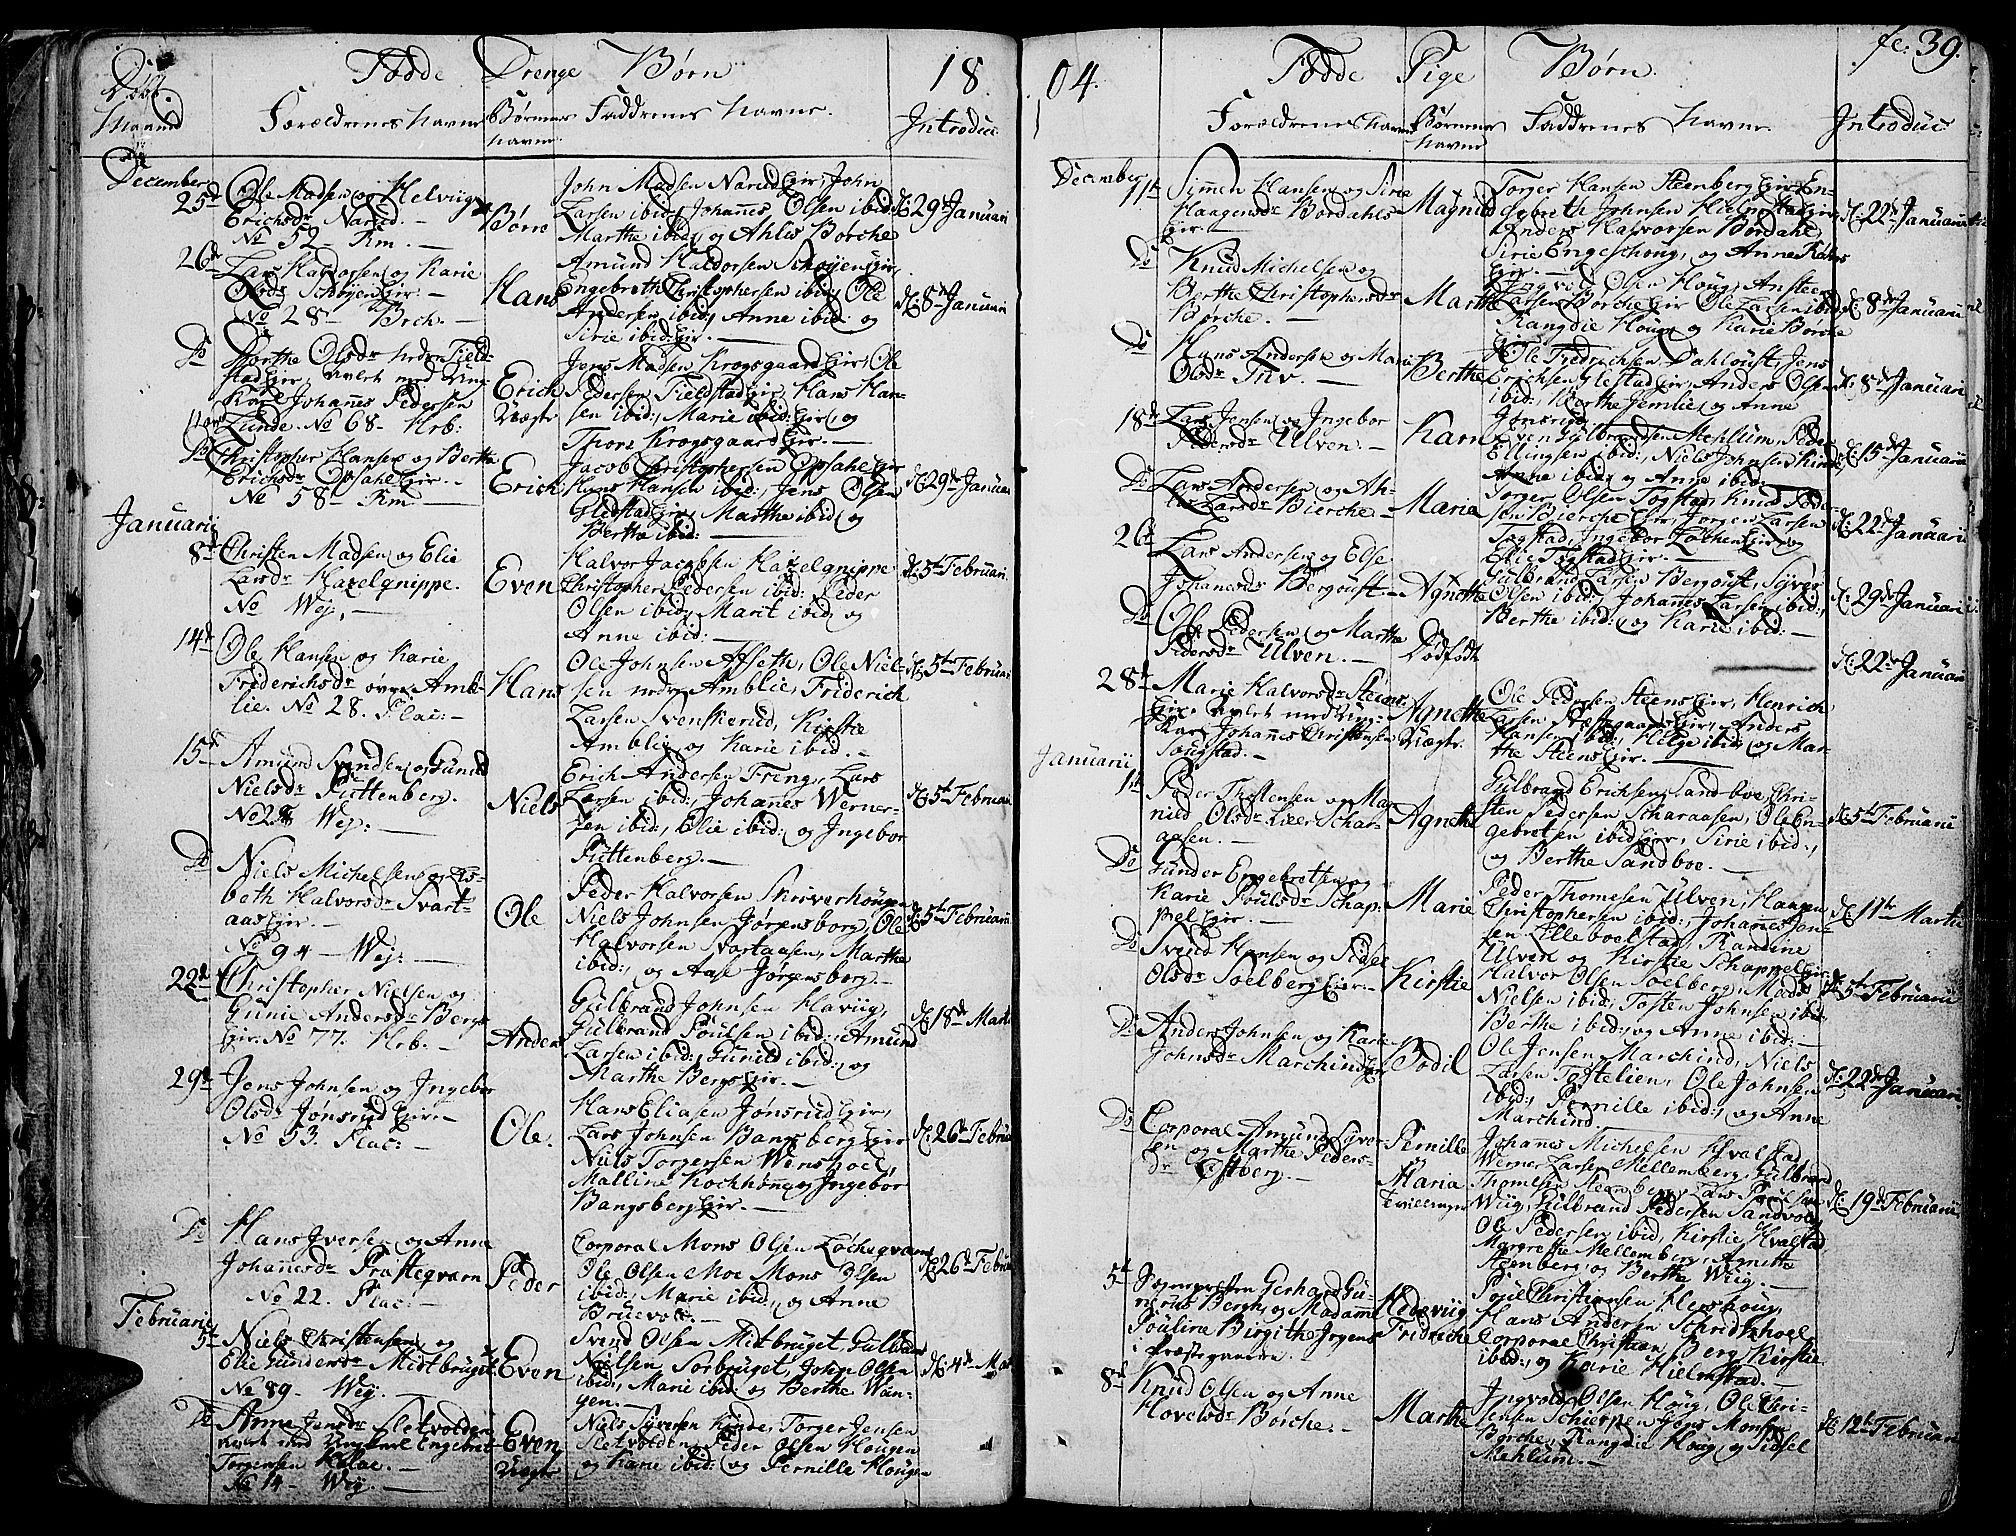 Fødde Drenge Børn 18
Daab.
Forældrenes Navne
Børnenes Navne
Faddrenes Navne.
Introduc.
December
25de
Ole Madsen og Helviig
Erichsdr Narud.
No 52 Rm.
Børre
John Madsen Narud Eir, John
Larsen ibid; Johannes Olsen ibid;
Marthe ibid; og Ahlis Børche
d: 29de Januarii
26de
Lars Haldorsen og Karie
Olsdr Schøyen Eir.
No 28 Brch.
Hans
Amund Haldorsen Schøyen Eir,
Engebreth Christophersen ibid; Ole
Andersen ibid; Anne ibid: og
Sirie ibid: Eir.
d: 8de Januarii
Do
Dorthe Olsdr nedre Field-
stad Eir, avlet med Ung-
Karl Johannes Pedersen
Lunde. No 68 Hrb:
Erich
Uægte
Jens Madsen Krogsgaard Eir, Ole
Pedersen Fieldstad Eir, Hans Han-
sen ibid:, Marie ibid: Eir, og
Thore Krogsgaard Eir.
Do
Christopher Hansen og Berthe
Erichsdr Opsahl Eir.
No 58 Rm
Erich
Jacob Christophersen Opsahl Eir
Hans Hansen ibid:, Jens Olsen
Glestad Eir, Marthe ibid; og
Berthe ibid:
d: 29de Januarii
Januarii
8de
Christen Madsen og Elie
Larsdr Haxelgnippe.
No Wej,
Even
Halvor Jacobsen Haxelgnippe
Christopher Pedersen ibid: Peder
Olsen ibid; Marit ibid; og
Anne ibid:
d: 5te Februarii
14de
Ole Hansen og Karie
Friderichsdr øvre Amb-
lie. No 28. Plac:
Hans
Ole Johnsen Afseth, Ole Niel-
sen nedre Amblie, Friderich
Larsen Svenskerud, Kirstie
Amblie og Karie ibid.
d: 5te Februarii
15de
Amund Svendsen og Gunild
Nielsdr Puttenberg.
No 28 Wej:
Niels
Erich Andersen Freng, Lars
Larsen ibid:, Johannes Werner-
sen ibid:, Elie ibid: og Ingebor
Puttenberg.
d: 5te Februarii
Do
Niels Michelsen og Lis-
beth Halvorsdr Svart-
aas Eir.
No 94 Wej:
Ole
Peder Halvorsen Skriverhougen
Niels Johnsen Jørgensborg, Ole
Halvorsen Svartaasen, Marthe
ibid:, og Aase Jørgensborg.
d: 5te Februarii
22de
Christopher Nielsen og
Gunie Andersdr Bergs
Eir. No 77. Hrb.
Anders
Gulbrand Johnsen Haviig,
Gulbrand Poulsen ibid:, Amund
Larsen ibid; Gunild ibid:, og
Marthe Bergs Eir.
d: 18de Martii
29de
Jens Johnsen og Ingebor
Olsdr Jønsrud Eir.
No 53. Plac:
Ole.
Hans Eliasen Jønsrud Eir,
Lars Johnsen Bangsberg Eir
Niels Torgersen Wemshoel,
Malline Kochhøne og Ingebor
Bangsberg Eir.
d: 26de Februarii
Do
Hans Iversen og Anne
Johannesdr Præstegvarn
No 22. Plac:
Peder
Corporal Mons Olsen Løchegvarn
Ole Olsen Moe Mons Olsen
ibid:, Marie ibid:, og Anne
Bruevold.
d: 26de Februarii
Februarii
5te
Niels Christensen og
Elie Gundersdr Midtbruget
No 89 Wej.
Even
Svend Olsen Mitbruget, Gulbrand
Nielsen Sorbruget, John Olsen
ibid:, Marie ibid; og Berthe Wan-
gen.
d: 4de Mar
Do
Anne Jensdr Sletvolden
avlet med Ungkarl Engebret
Torgersen Kalae.
No 14 Wej.
Even
Uægte
Niels Siversen Kinde, Torger Jensen
Sletvolden, Peder Olsen Hougen
og Karie ibid: og Pernille Hougen
04. Fødde Pige Børn. fe: 39.
Forældrenes Navne
Børnenes Navne
Faddrenes Navne.
Introduc
December
11te
Simen Hansen og Sirie
Haagensdr Bordahls
Eir.
Magnild
Torger Hansen Steenberg Eir, En-
gebreth Johnsen Hielmstad Eir,
Anders Halvorsen Bordahl
Sirie Engeschoug, og Anne Røhns
Eir.
d: 22de Januarii
Do
Knud Michelsen og
Berthe Christophersdr
Børche.
Marthe
Ingvold Olsen Houg, Ansteen
Larsen Børche Eir Ole Larsen ibid
Rangdie Houg og Karie Børche
Eir.
d: 8de Januarii
Do
Hans Andersen og Marie
Olsdr Tnv.
Berthe
Ole Fredrichsen Dahloust, Jens
Erichsen Glestad Eir, Anders Olsen
ibid:, Berthe Jemlie, og Anne
Jønsrud.
d: 8de Januarii
18de
Lars Jensen og Ingebor
Pedersdr Ulven.
Karn
Even Gulbrandsen Mehlum, Peder
Ellingsen ibid:, Niels Johnsen Kinde,
Anne ibid: og Anne ibid:
d: 15de Januarii
Do
Lars Andersen og Ah-
lis Larsdr Bierche
Maria
Torger Olsen Togstad, Knud Peder-
sen Bierche Eir, Jørgen Larsen
Togstad, Ingebor Løchen Eir, og
Elie Togstad Eir.
d: 22de Januarii
26de
Lars Andersen og Else
Johansdr Bergoust
Agnethe
Gulbrand Larsen Bergoust, Syver
Olsen ibid:, Johannes Larsen ibid:,
Berthe ibid: og Karie ibid:
d: 29de Januarii
Do
Ole Pedersen og Marthe
Pedersdr Ulven.
Dødfødt
d: 22de Januarii
28de
Marie Halvorsdr Steens
Eir, avlet med Ung-
Karl Johannes Christensen
Sougstad.
Agnethe
Uægte.
Ole Pedersen Steens Eir, Henrich
Larsen Næstegaard Eir, Anders
Hansen ibid:, Helge ibid: og Mar-
the Steens Eir.
Januarii
1te
Peder Thostensen og Mag-
nild Olsdr Schar-
aasen.
Agnethe
Gulbrand Erichsen Sandboe, Chri-
sten Pedersen Scharaasen, Ole En-
gebretsen ibid: Eir, Sirie ibid:,
og Berthe Sandboe.
d: 5te Februarii
Do
Gunder Engebretsen og
Karie Poulsdr Schap-
pel Eir.
Marie
Peder Thomesen Ulven, Haagen
Christophersen ibid:, Johannes Jen-
sen Lilleboelstad, Randine
Ulven og Kirstie Schappel Eir.
d: 11te Martii
Do
Svend Hansen og Pidse
Olsdr Soelberg Eir.
Kirstie
Halvor Olsen Soelberg, Mads
Nielsen ibid:, Tosten Johnsen ibid,
Berthe ibid: og Anne ibid:
d: 5te Februarii
Do
Anders Johnsen og Karie
Johnsdr Marchind Eir
Bodil
Ole Jensen Marchind, Niels
Larsen Tostelien, Ole Johnsen
ibid:, Pernille ibid:, og Anne
Marchind.
d: 22de Januarii
Do
Corporal Amund Syver-
sen og Marthe Peders-
dr Østberg.
Pernille
Maria
Tvillinger
Johanes Michelsen Hvalstad,
Werner Larsen Mellemberg, Gulbrand
Thomesen Steenberg, Lars Poulsen
Wiig, Gulbrand Pedersen Sandvold
Ole Pedersen ibid, Kirstie Hvalstad
Margrethe Mellemberg, Anette
Steenberg, og Berthe Wiig.
d: 19de Februarii
5te
Sognepresten Gerhard Gu-
nerus Bergh, og Madame
Pouline Birgithe Jrgens
i Præstegaarden.
Hedeviig
Fridriche
Poul Christiansen Hershoug,
Hans Andersen Schredshoel
Corporal Christian Berg, Kirstie
ibid:, og Karie Hielmstad.
8de
Knud Olsen og Anne
Hovelsdr Børche.
Marthe
Ingvold Olsen Houg, Ole Chri-
stensen Schierpen Jens Monsen
Børche, Rangdie Houg, og Sidsel
Mehlum.
d: 12te Februarii